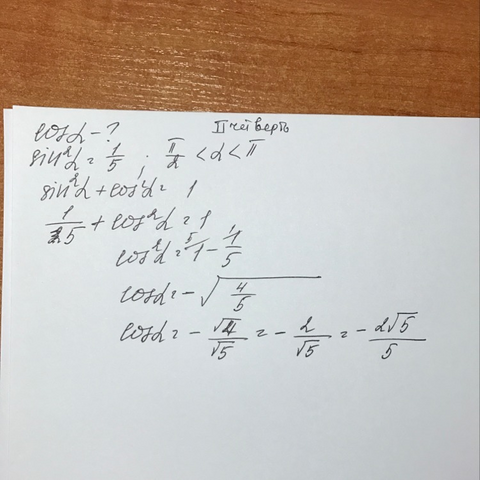 cosα - ? II четверть
sin²α = 1/5 ; π/2 < α < π
sin²α + cos²α = 1
1/5 + cos²α = 1
cos²α = ⁵⁄1 - ¹⁄ 1/5
cosα = - √(4/5)
cosα = - √4/√5 = - 2/√5 = - 2√5/5